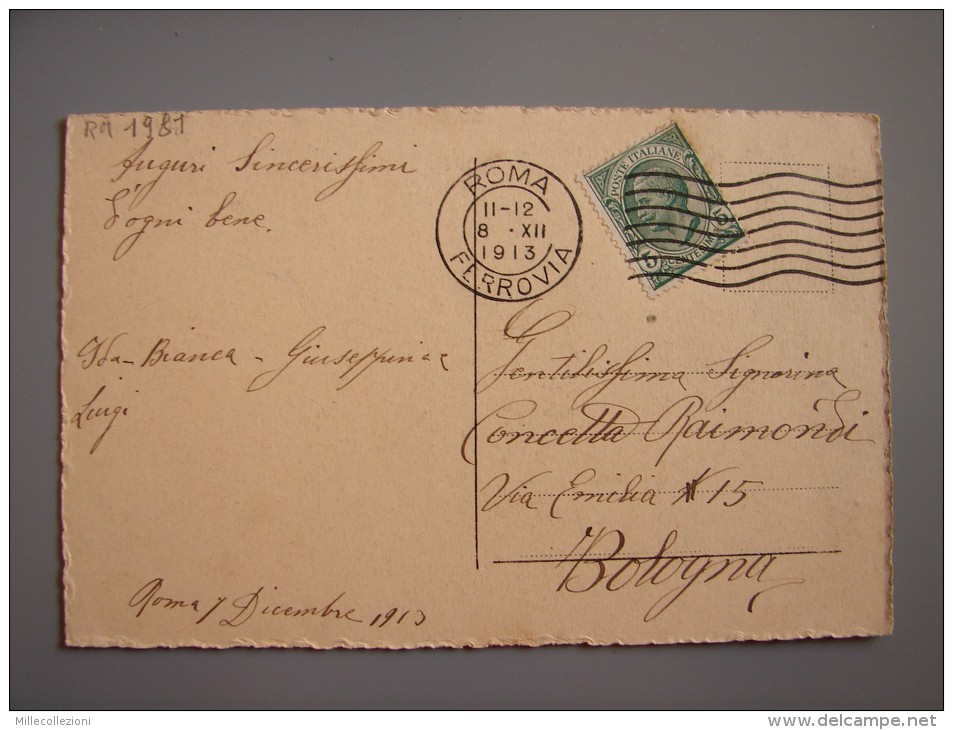 RM 1981
Auguri Sincerissimi
d'ogni bene.
Ida - Bianca - Giuseppina e
Luigi
Roma 7 Dicembre 1913
ROMA
11-12
8 · XII
1913
FERROVIA
POSTE ITALIANE
5 CENTESIMI 5
Gentilissima Signorina
Concetta Raimondi
Via Emilia 15
Bologna
Millecollezioni
www.delcampe.net